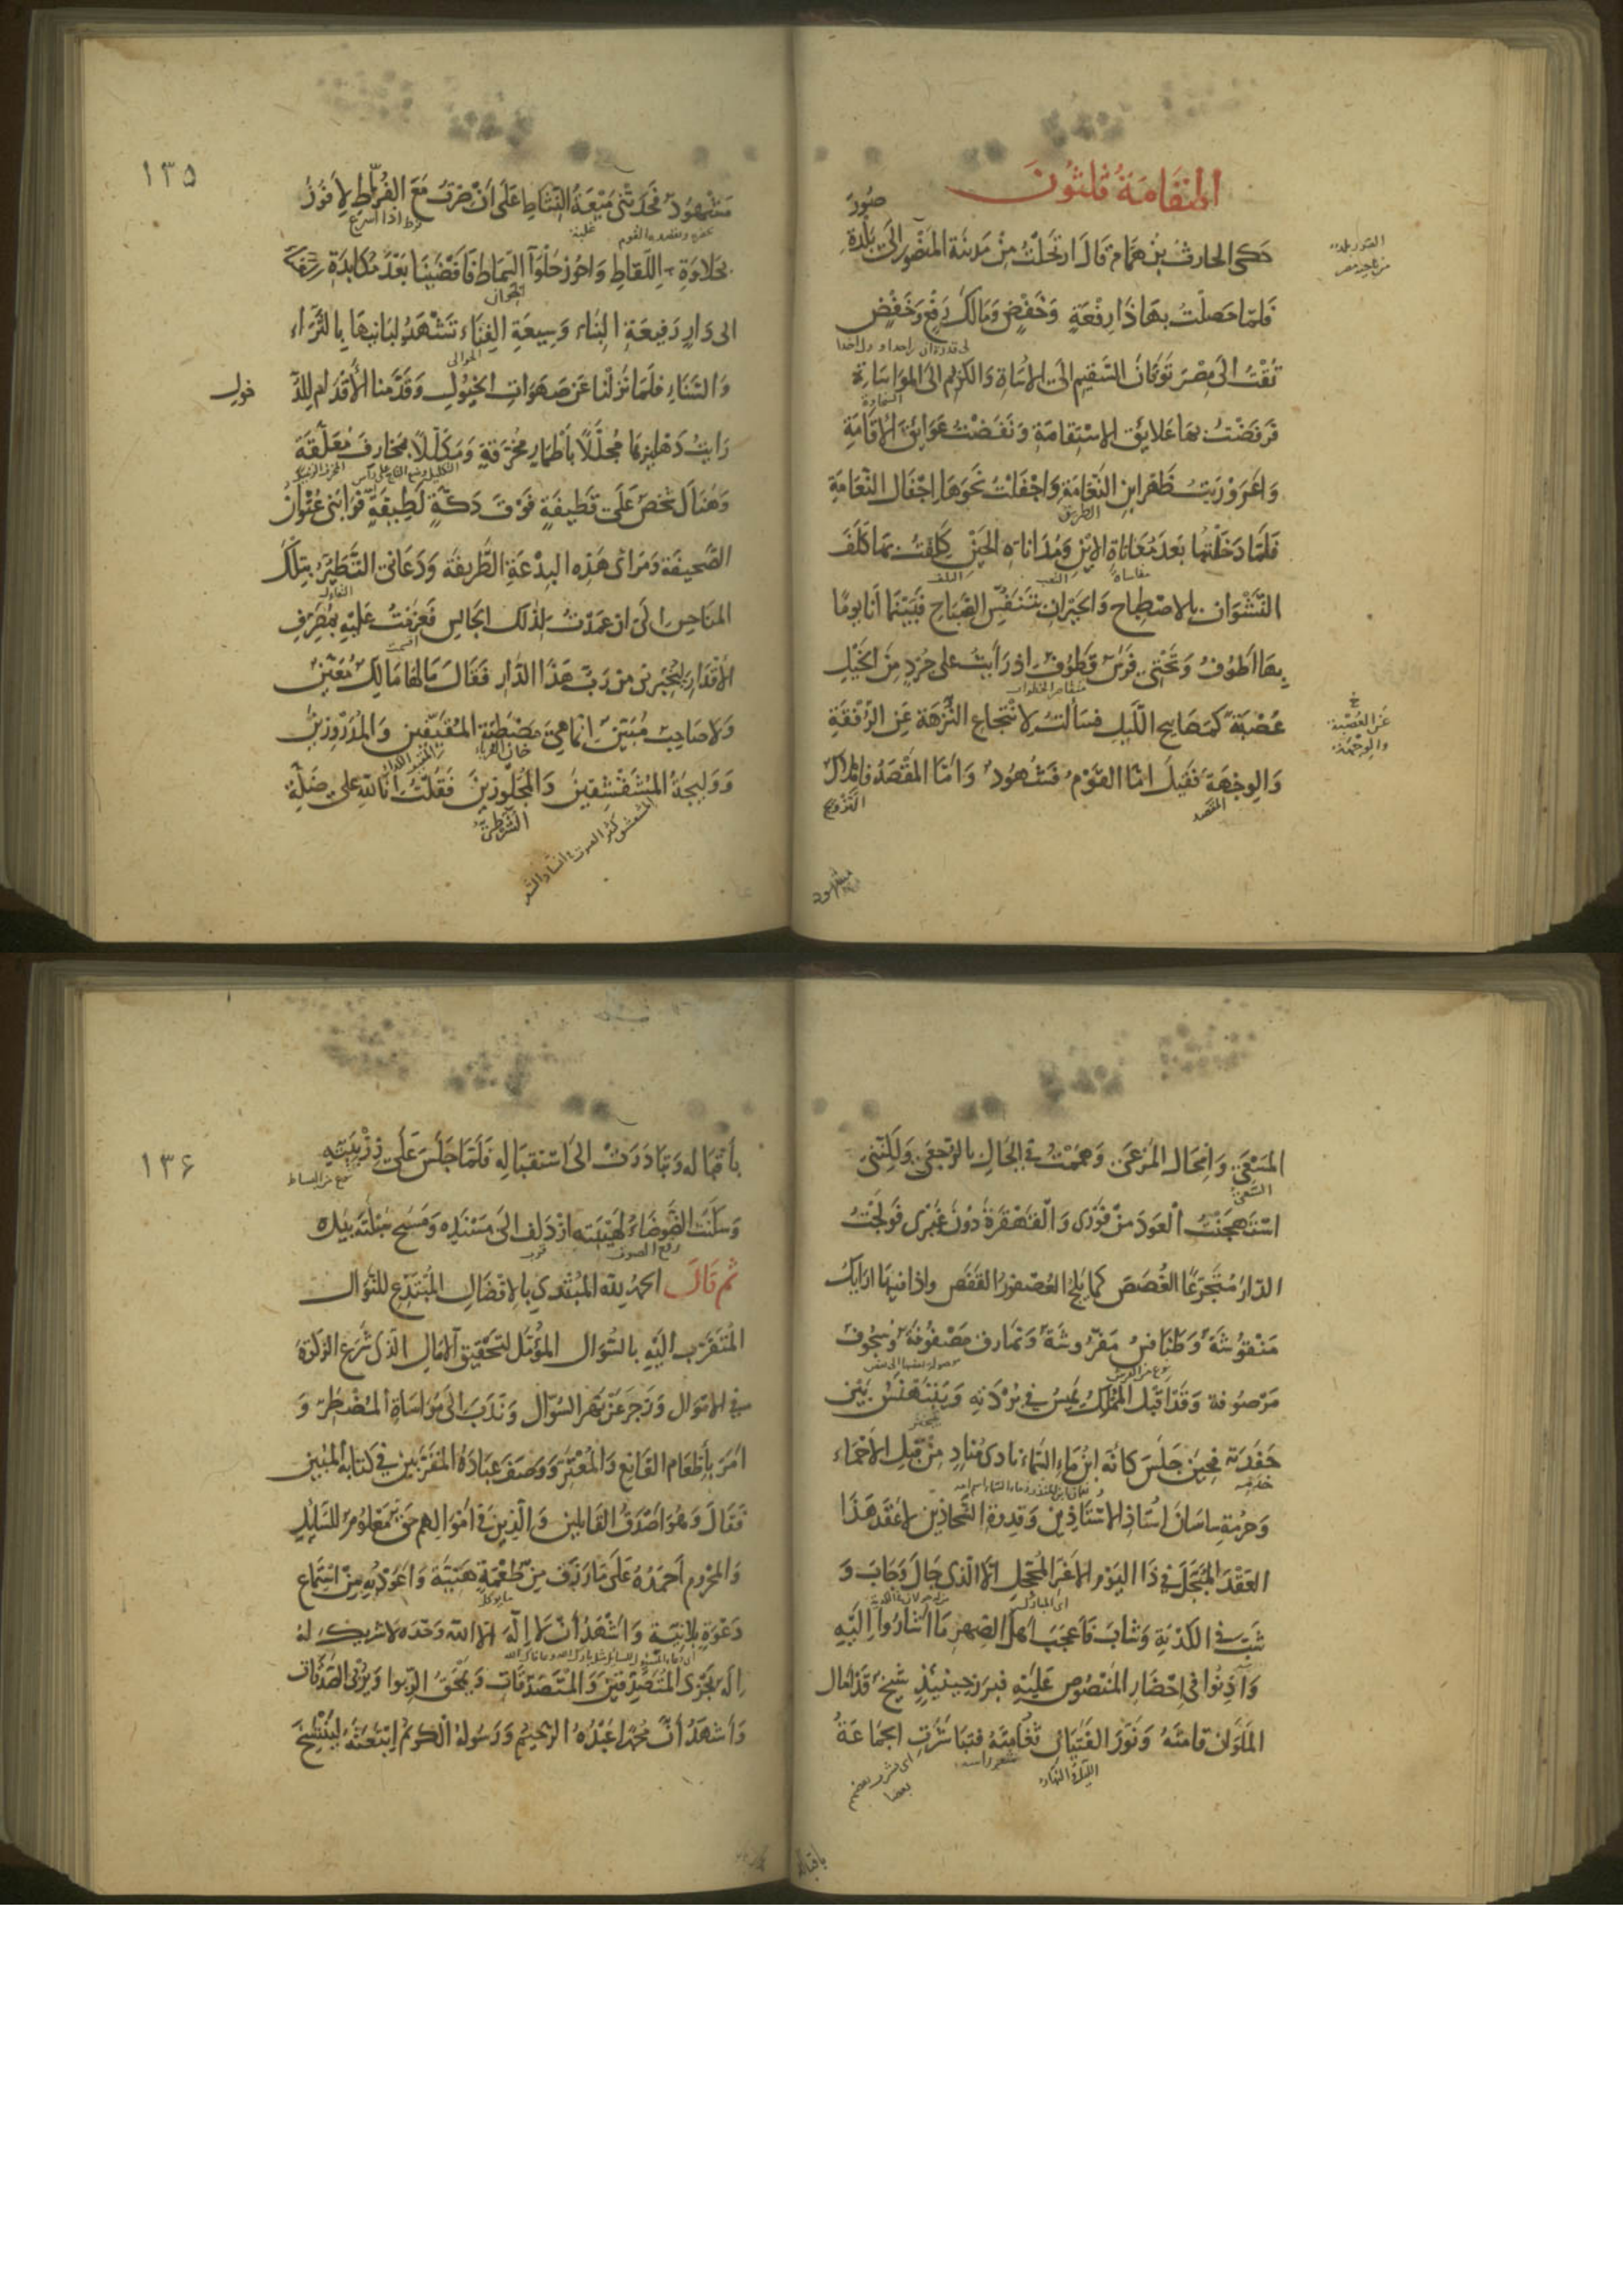 المقامة ثلثون
صور
حكى الحارث بن همام قال ارتحلت من مدينة المنصور الى بلدة
فلما حصلت بها ذا رفعة وخفض ومالك رفع وخفض
تقت الى مصر توقان السقيم الى الاساة والكريم الى المواساة
فرفضت بها علايق الاستقامة ونفضت عوايق الاقامة
واعروريت ظهر ابن النعامة واجفلت نحوها اجفال النعامة
الطريق
فلما دخلتها بعد معاناة الاين ومداناة الحين كلفت بها كلف
مقاساة
التعب
النشوان بالاصطباح والحيران بتنفس الصباح فبينما أنا يوما
بها اطوف وتحتي فرس قطوف اذ رأيت على جرد من الخيل
عصبة كمصابيح الليل فسألت لانتجاع النزهة عن الرفقة
عن العصبة
والوجهة
والوجهة فقيل امّا القوم فشهود وامّا المقصد فاملاك
المقصد
التزويج
مشهود
١٣٥
مشهود فحدتني ميعة النشاط على ان خرت مع الفراط لافوز
فرط اذا اسرع
بحلاوة اللقاط واحوز حلوآ السماط فافضينا بعد مكابدة
الى دار رفيعة البناء وسيعة الفناء تشهد لبانيها بالثراء
والسناء فلما نزلنا عن صهوات الخيول وقدمنا الاقدام للد
خول
رايت دهليزها مجللا باطمار مخرقة ومكللا بمخارف معلقة
وهناك شخص على قطيفة فوق دكة لطيفة فرابني عنوان
الصحيفة ومرأى هذه البدعة الطريفة ودعاني التطير بتلك
المناحس الى ان عمدت لذلك الجالس فعزمت عليه بمصرف
الاقدار ليخبرني من رب هذا الدار فقال ما لها مالك معين
ولا صاحب مبين انما هي مصطبة المقيفين والمدروزين
ووليجة المشقشقين والمجلوزين فقلت انا لله على ضلة
الشرطي
المسعى وامحال المرعى وهممت في الحال بالرجعى ولكنني
استهجنت العود من فورى والقهقرة دون غيرى فولجت
الدار متجرعا الغصص كما يلج العصفور القفص واذا فيها ارايك
منقوشة وطنافس مفروشة ونمارق مصفوفة وسجوف
مرصوفة وقد اقبل المملك يميس في بردته ويتبهنس بين
حفدته فحين جلس كانه ابن ماء السماء نادى مناد من قبل الاحماء
وحرمة ساسان استاذ الاستاذين وقدوة الشحاذين لا عقد هذا
العقد المبجل في ذا اليوم الاغر المحجل الا الذى جال وجاب و
شب في الكدية وشاب فاعجب اهل الصهر ما اشاروا اليه
وآذنوا في احضار المنصوص عليه فبرز حينئذ شيخ قد امال
الملوان قامته ونور الفتيان ثغامته فتباشرت الجماعة
شعر راسه
الليل والنهار
اى بشر بعضهم
بعضا
باقباله
١٣۶
باقباله وتبادرت الى استقباله فلما جلس على زربيته
وسكنت الضوضاء لهيبته ازدلف الى مسنده ومسح سبلته بيده
رفع الصوت
قرب
ثم قال الحمد لله المبتدى بالافضال المبتدع للنوال
المتقرب اليه بالسوال المؤمل لتحقيق الامال الذى شرع الزكوة
في الاموال وزجر عن نهر السؤال وندب الى مواساة المضطر و
امر باطعام القانع والمعتر ووصف عباده المقربين في كتابه المبين
فقال وهو اصدق القايلين والذين في اموالهم حق معلوم للسايل
والمحروم احمده على ما رزق من طعمة هنيّة واعوذ به من استماع
دعوة بلا نية واشهد ان لا اله الا الله وحده لا شريك له
اله يجزى المتصدقين والمتصدقات ويمحق الربوا ويربى الصدقات
واشهد ان محمدا عبده الرحيم ورسوله الكريم ابتعثه لينسخ